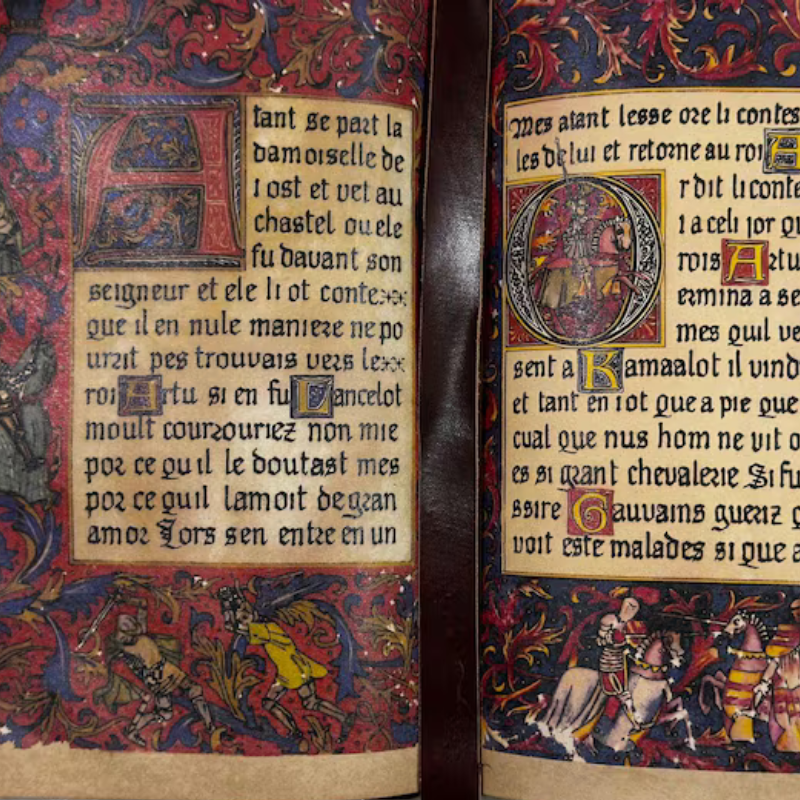 Atant se part la
damoiselle de
l ost et vet au
chastel ou ele
fu davant son
seigneur et ele li ot conte
que il en nule maniere ne po
urrit pes trouvais vers le
roi Artu si en fu Lancelot
moult courrouriez non mie
por ce qu il le doutast mes
por ce quil lamoit de gran
amor Lors sen entre en un
Mes atant lesse ore li contes
les de lui et retorne au roi A
Or dit li conte
l a celi jor qu
rois Artu
ermina a se
mes quil ve
sent a Kamaalot il vind
et tant en i ot que a pie que
cual que nus hom ne vit o
es si grant chevalerie Si fu
ssire Gauvains gueriz
voit este malades si que a